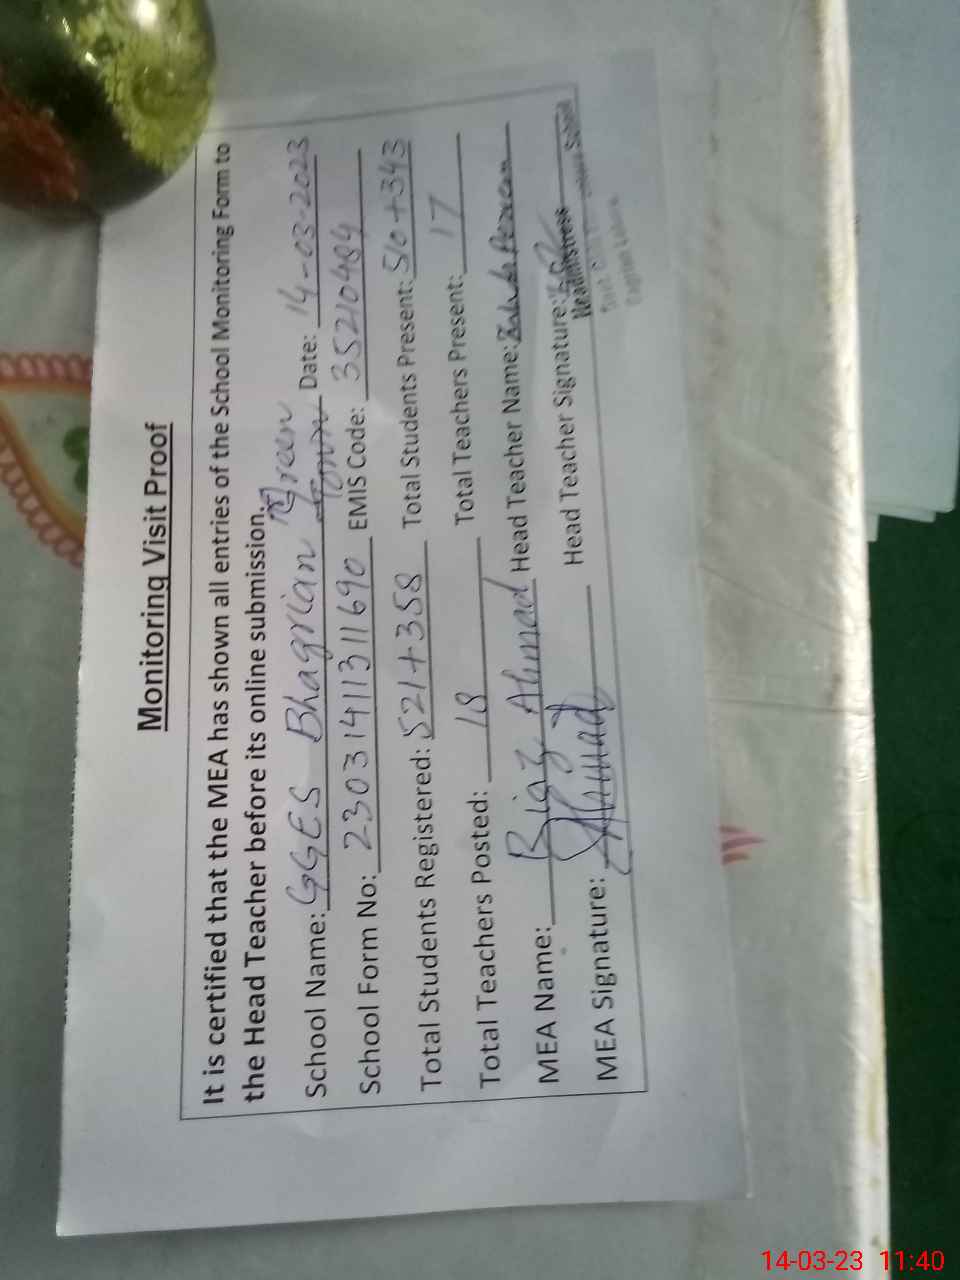 Monitoring Visit Proof
It is certified that the MEA has shown all entries of the School Monitoring Form to
the Head Teacher before its online submission.
School Name: GGES Bhagrian Green Town Date: 14-03-2023
School Form No: 23031411311690 EMIS Code: 35210484
Total Students Registered: 521+358 Total Students Present: 510+343
Total Teachers Posted: 18 Total Teachers Present: 17
MEA Name: Riaz Ahmad Head Teacher Name:
MEA Signature: Ahmad Head Teacher Signature:
Headmistress
School
Lahore
14-03-23 11:40